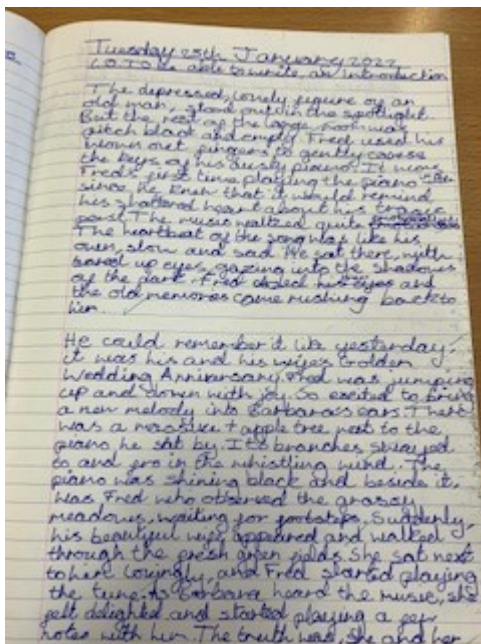 Tuesday 25th January 2022
L.O. To be able to write an introduction
The depressed, lonely figure of an
old man, stood out in the spotlight.
But the rest of the large room was
pitch black and empty. Fred used his
worn out fingers to gently caress
the keys of his dusty piano. It was
Fred's first time playing the piano
since, he knew that it would remind
his shattered heart about his tragic
past. The music waltzed quite
The heartbeat of the song was like his
own, slow and sad. He sat there, with
up eyes, gazing into the shadows
of the dark. Fred closed his eyes and
the old memories came rushing back to
him.
He could remember it like yesterday.
it was his and his wife's Golden
Wedding Anniversary. Fred was jumping
up and down with joy. So excited to bring
a new melody into Barbara's ears. There
was a massive apple tree next to the
piano he sat by. Its branches swayed
to and fro in the whistling wind. The
piano was shining black and beside it,
was Fred who observed the grassy
meadows, waiting for footsteps. Suddenly,
his beautiful wife appeared and walked
through the fresh green fields. She sat next
to him lovingly, and Fred started playing
the tune. As Barbara heard the music, she
felt delighted and started playing a few
notes with him. The truth was, she and her